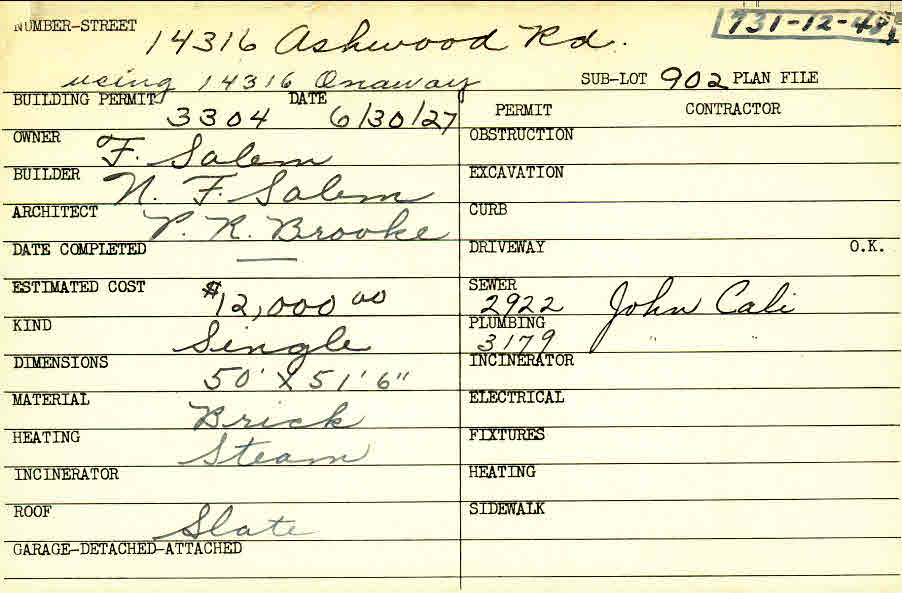 NUMBER-STREET 14316 Ashwood Rd. 731-12-48
using 14316 Onaway SUB-LOT 902 PLAN FILE
BUILDING PERMIT 3304 DATE 6/30/27 PERMIT CONTRACTOR
OWNER F. Salem OBSTRUCTION
BUILDER N. F. Salem EXCAVATION
ARCHITECT P. R. Brooke CURB
DATE COMPLETED — DRIVEWAY O.K.
ESTIMATED COST $12,000 00 SEWER 2922 John Cali
KIND Single PLUMBING 3179 " "
DIMENSIONS 50' X 51' 6" INCINERATOR
MATERIAL Brick ELECTRICAL
HEATING Steam FIXTURES
INCINERATOR HEATING
ROOF Slate SIDEWALK
GARAGE-DETACHED-ATTACHED